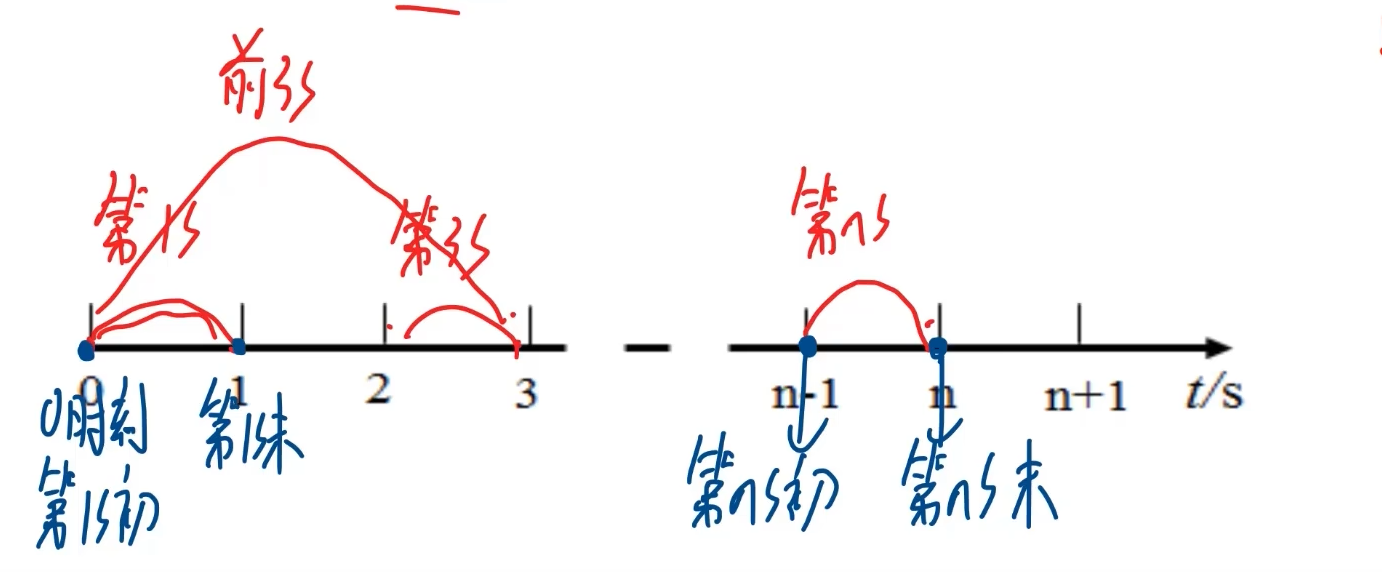 前3s
第1s
第3s
第ns
0 1 2 3 n-1 n n+1 t/s
0时刻 第1s末
第1s初
第ns初 第ns末